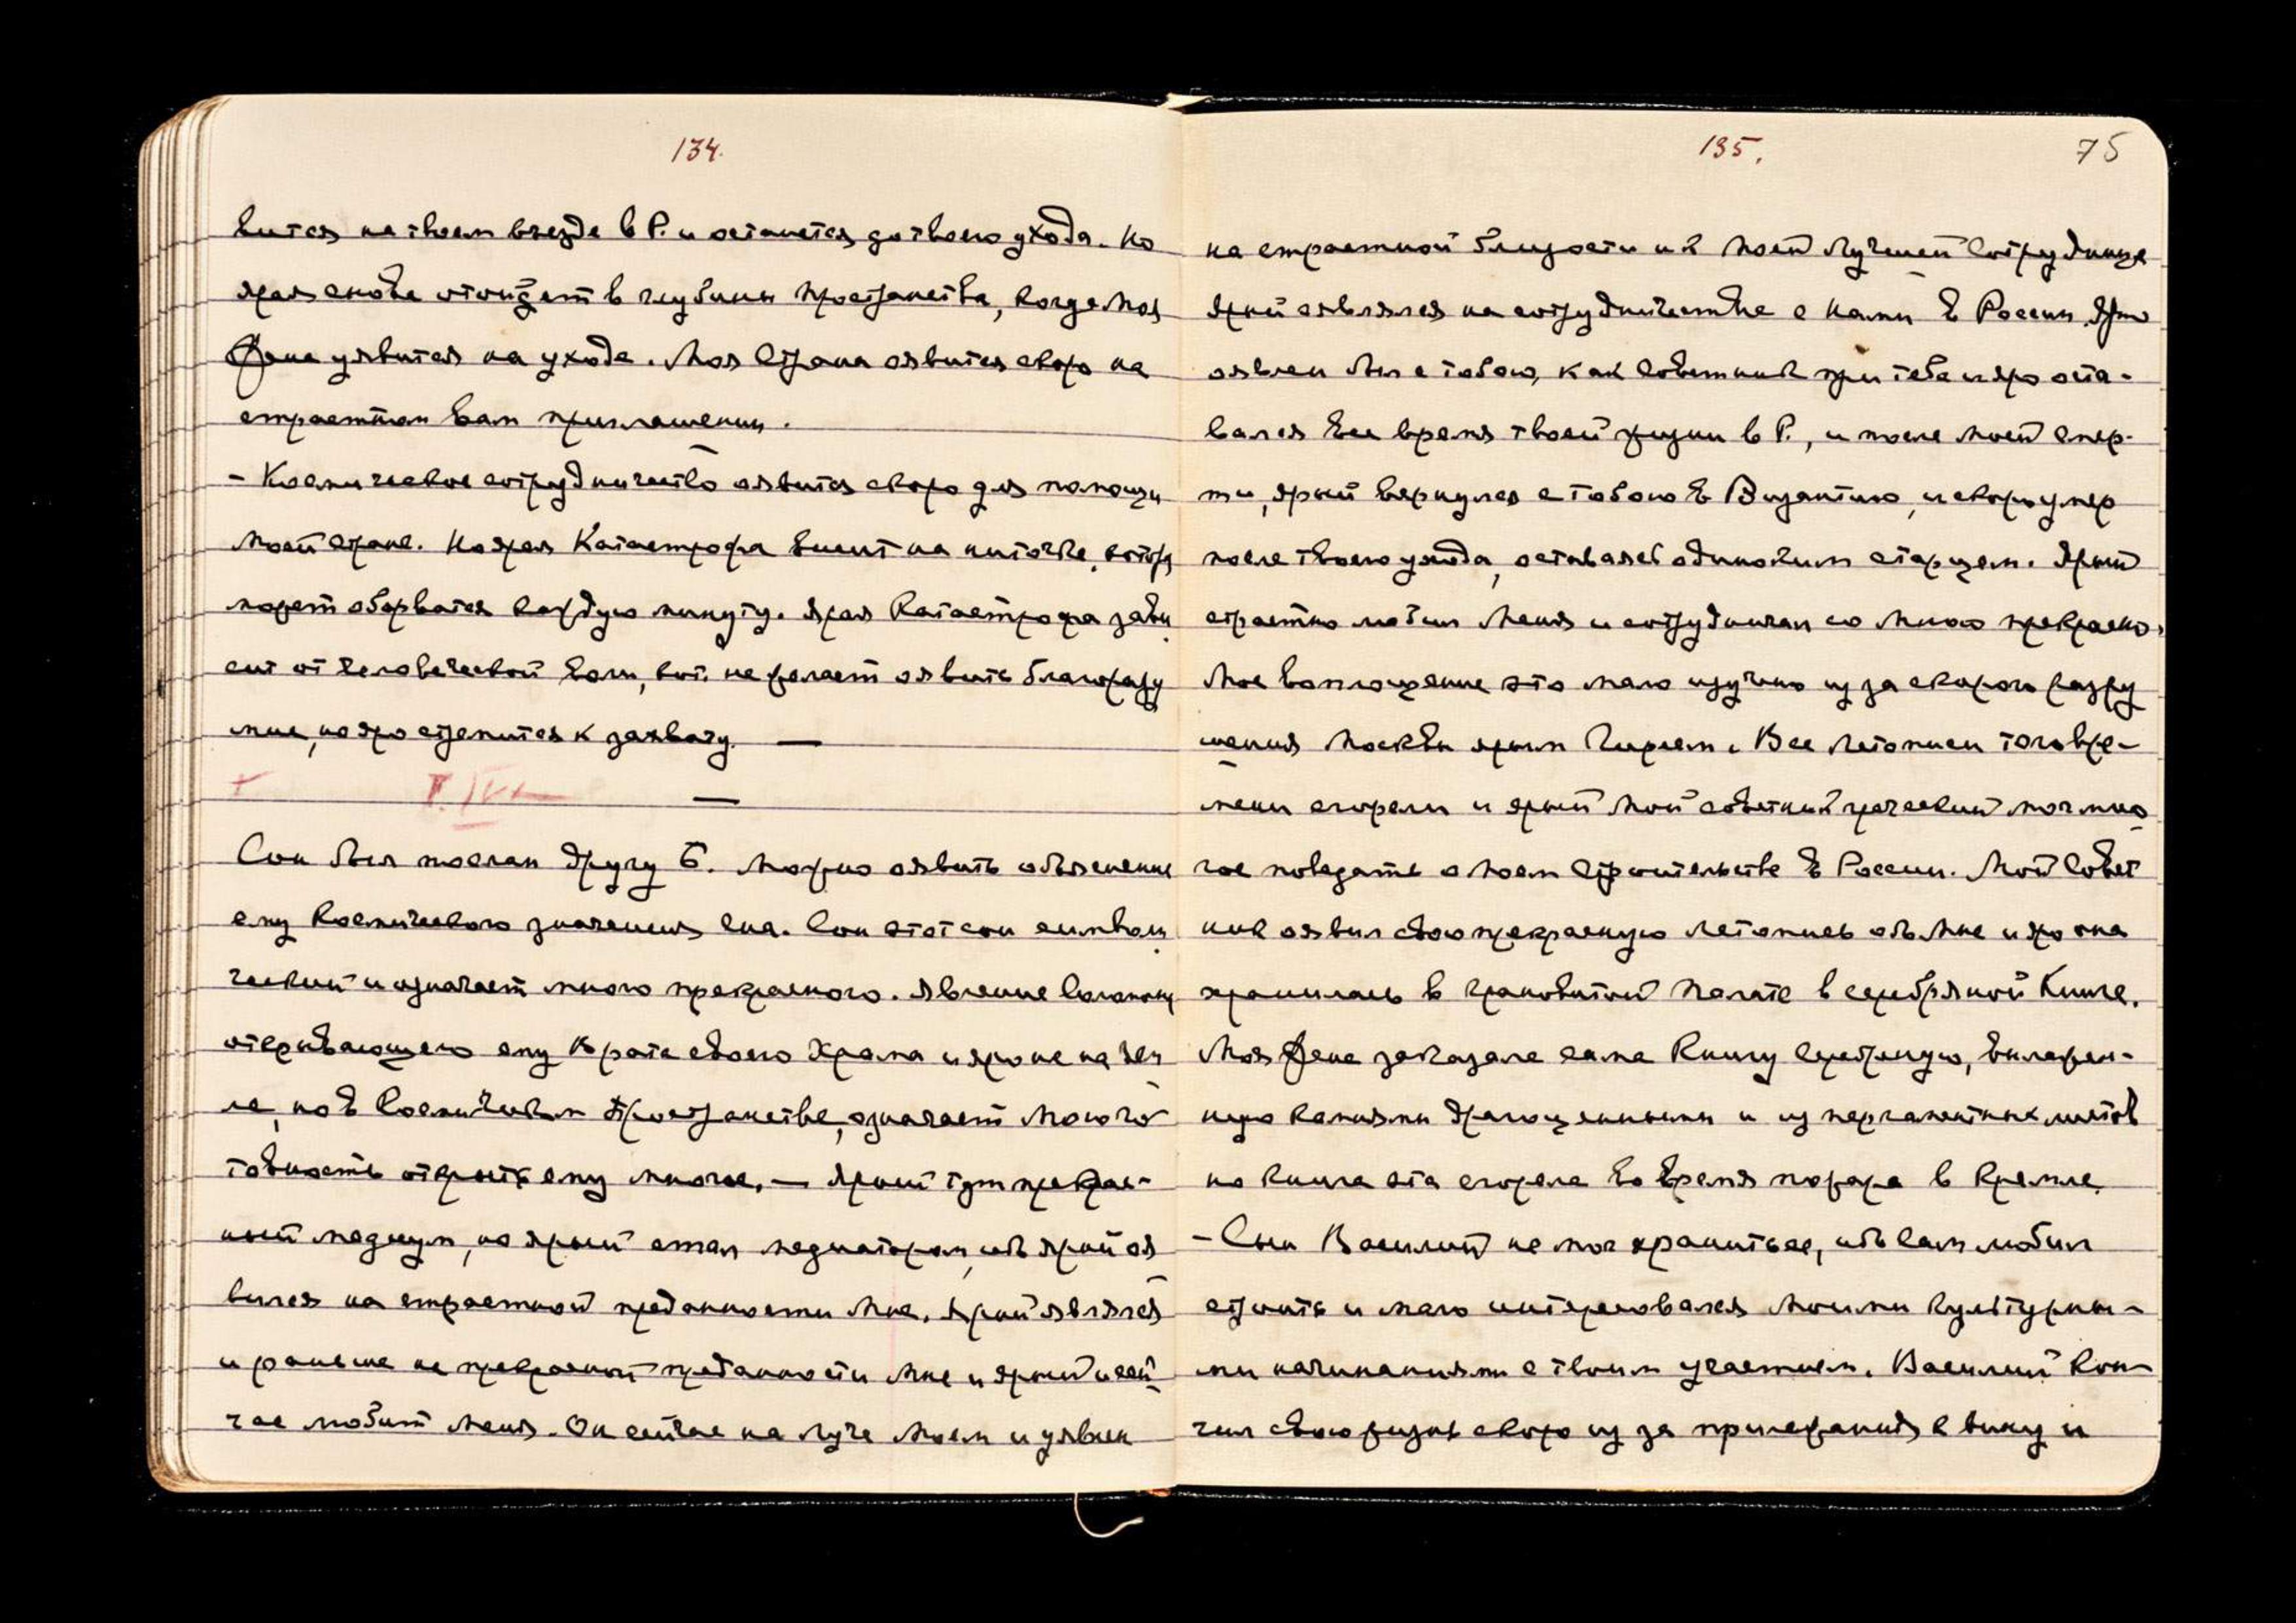 134.
вится на твоем въезде в Р. и останется до твоего ухода. Но
ярая снова отойдет в глубины пространства, когда Моя
Жена уявится на уходе. Моя Страна оявится скоро на
страстном Вам приглашении.
– Космическое сотрудничество оявится скоро для помощи
Моей стране. Но ярая Катастрофа висит на ниточке, котор.
может оборваться каждую минуту. Ярая Катастрофа зави
сит от человеческой воли, кот. не желает оявить благоразу
мие, но яро стремится к захвату. —
+ —
Сон был послан другу Б. Можно оявить объяснение
ему космического значения сна. Сон этот сон символи
ческий и означает много прекрасного. Явление
открывающего ему Врата своего Храма и яро не на Зем
ле, но в Космическом Пространстве, означает Мою го
товность открыть ему многое, — Ярый тут прекрас-
ный медиум, но ярый стал медиатором, ибо ярый оя
вился на страстной преданности Мне. Ярый являлся
и раньше на прекрасной преданности Мне и ярый и сей
час любит Меня. Он сейчас на Луче Моем и уявлен
135.
75
на страстной близости и к Моей Лучшей Сотруднице
Ярый оявлялся на сотрудничестве с Нами в России. Яро
оявлен был с тобою, как советник при тебе и яро оста-
вался все время твоей жизни в Р., и после Моей смер-
ти, ярый вернулся с тобою в Византию, и скоро умер
после твоего ухода, оставаясь одиноким старцем. Ярый
страстно любил Меня и сотрудничал со Мною прекрасно.
Мое воплощение это мало изучено из за скорого разру
шения Москвы ярым Гиреем. Все летописи того вре-
мени сгорели и ярый Мой советник греческий мог мно
гое поведать о Моем Строительстве в России. Мой Совет
ник оявил свою прекрасную летопись обо Мне и яро она
хранилась в Грановитой Палате в серебряной Книге.
Моя Жена заказала сама Книгу серебряную,
ную камнями драгоценными и из пергаментных листов
но книга эта сгорела во время пожара в Кремле.
– Сын Василий не мог хранить ее, ибо сам любил
строить и мало интересовался Моими культурны-
ми начинаниями с твоим участием. Василий кон-
чил свою жизнь скоро из за прилежания к вину и